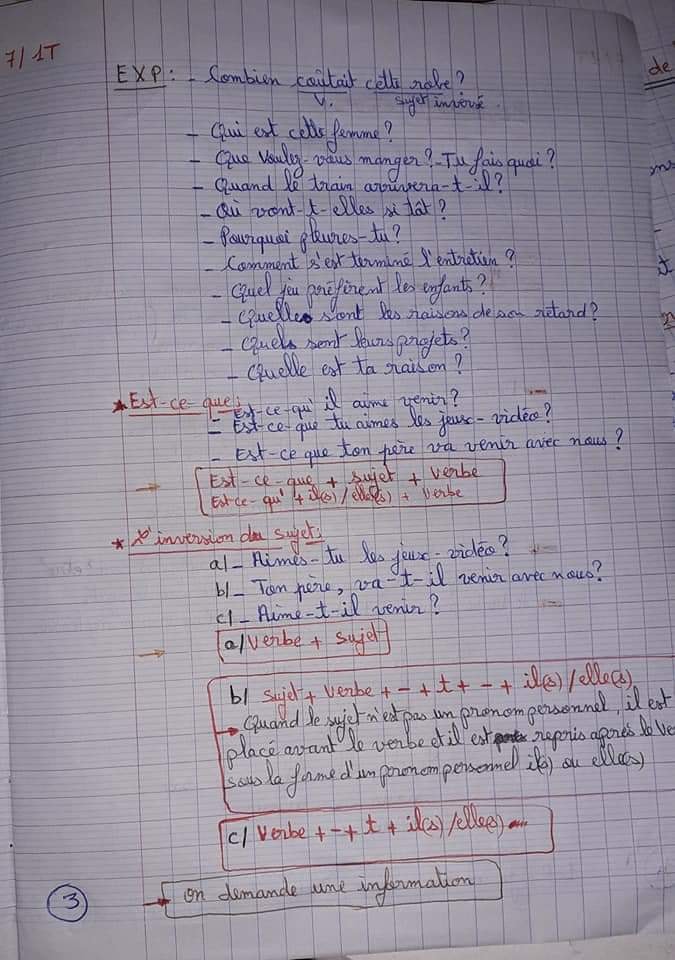 7/1T
EXP: - Combien coûtait cette robe?
V. sujet inversé.
- Qui est cette femme?
- Que voulez-vous manger? - Tu fais quoi?
- Quand le train arrivera-t-il?
- Où vont-t-elles si tôt?
- Pourquoi pleures-tu?
- Comment s'est terminé l'entretien?
- Quel jeu préfèrent les enfants?
- Quelles sont les raisons de son retard?
- Quels sont leurs projets?
- Quelle est ta raison?
* Est-ce-que:
- Est-ce-qu'il aime venir?
- Est-ce-que tu aimes les jeux-vidéo?
- Est-ce que ton père va venir avec nous?
→ Est-ce-que + sujet + verbe
Est-ce-qu' + il(s)/elle(s) + verbe
* L'inversion du sujet:
a/- Aimes-tu les jeux-vidéo?
b/- Ton père, va-t-il venir avec nous?
c/- Aime-t-il venir?
→ a/ verbe + sujet
b/ sujet + verbe + - + t + - + il(s)/elle(s)
→ Quand le sujet n'est pas un pronom personnel, il est
placé avant le verbe et il est repris après le ve
sous la forme d'un pronom personnel il(s) ou elle(s)
c/ verbe + - + t + il(s)/elle(s)
→ on demande une information
3
de